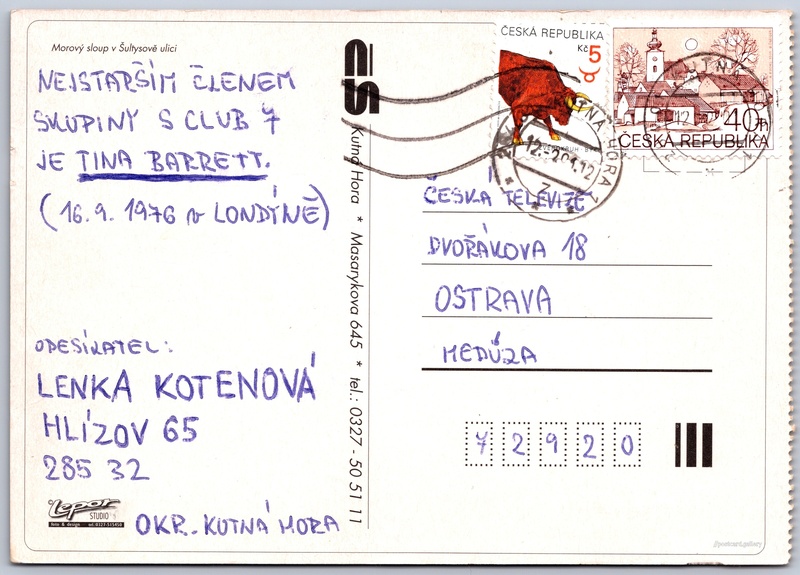 Morový sloup v Šultysově ulici
NEJSTARŠÍM ČLENEM
SKUPINY S CLUB 7
JE TINA BARRETT.
(16.9. 1976 v LONDÝNĚ)
ODESÍLATEL:
LENKA KOTENOVÁ
HLÍZOV 65
285 32
OKR. KUTNÁ HORA
Lepor
STUDIO
foto & design tel: 0327-515450
Kutná Hora * Masarykova 645 * tel.: 0327 - 50 51 11
ČESKÁ REPUBLIKA
Kč 5
ČESKÁ REPUBLIKA
40h
KUTNÁ HORA 1
ČESKÁ TELEVIZE
DVOŘÁKOVA 18
OSTRAVA
MEDÚZA
72920
//postcard.gallery